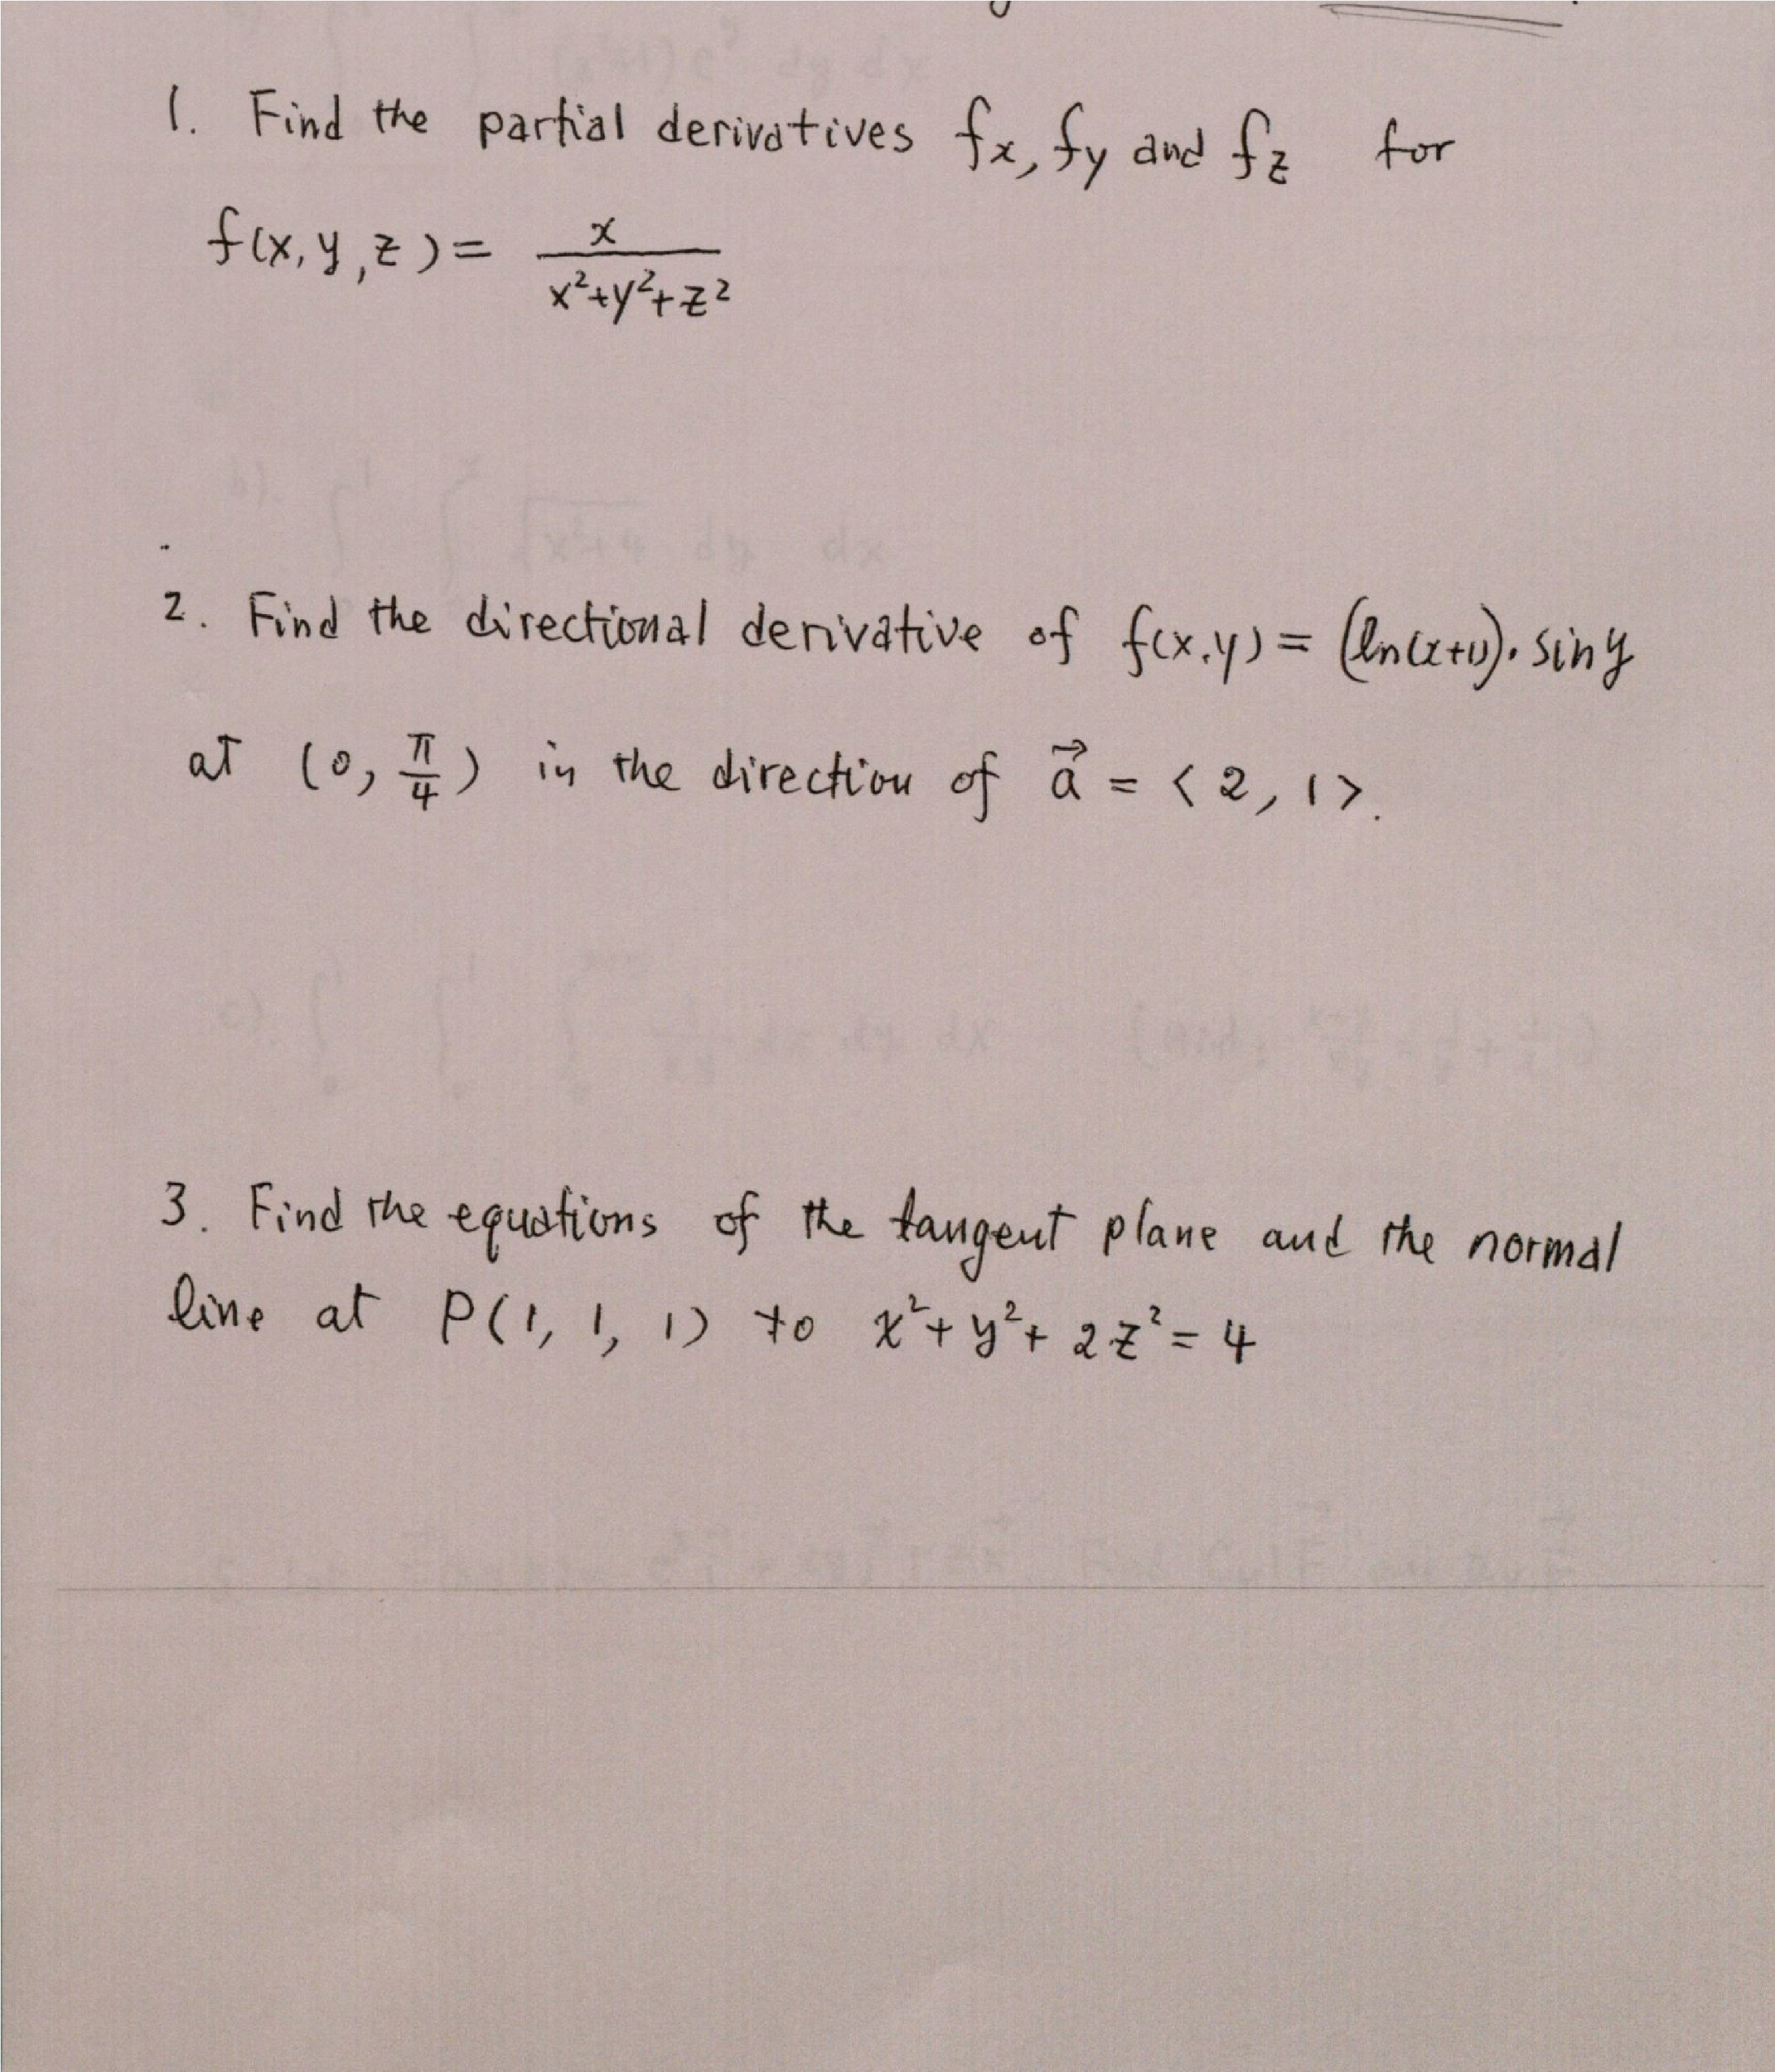 1. Find the partial derivatives fx, fy and fz for
f(x, y, z) = x / (x²+y²+z²)
2. Find the directional derivative of f(x,y) = (ln(x+1)). sin y
at (0, π/4) in the direction of a⃗ = <2, 1>.
3. Find the equations of the tangent plane and the normal
line at P(1, 1, 1) to x²+y²+2z²=4